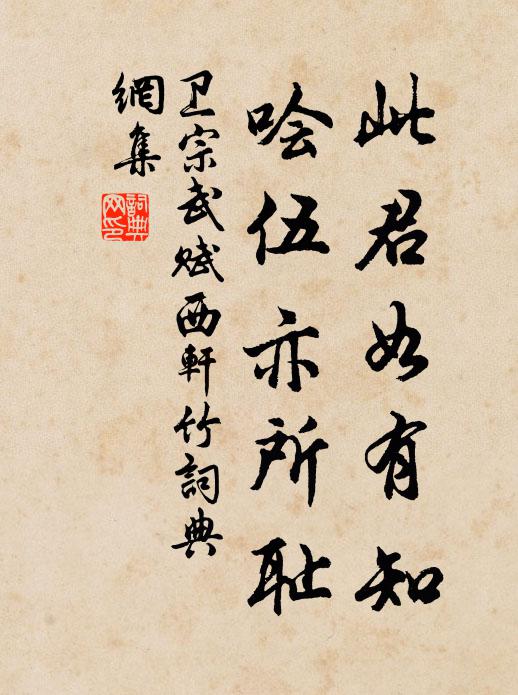 此君如有知
哙伍亦所耻
卫宗武赋西軒竹詞典
網集
詞典
网印